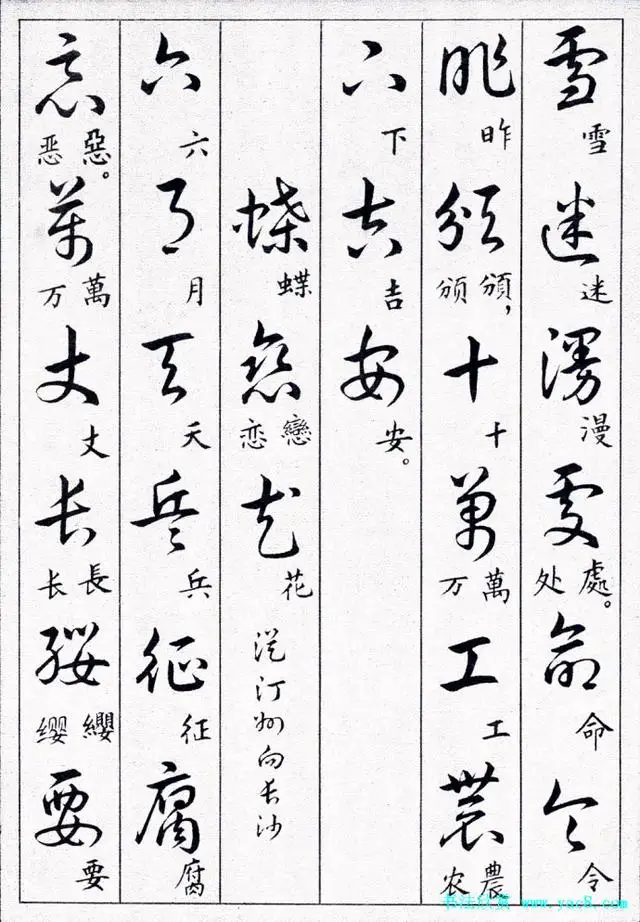 雪迷漫處命令
雪 迷 漫 處。处 命 令
昨頒十萬工農
昨 頒，颁 十 萬万 工 農农
下吉安
下 吉 安。
蝶戀花
蝶 戀恋 花
从汀州向长沙
六月天兵征腐
六 月 天 兵 征 腐
惡萬丈長纓要
惡。恶 萬万 丈 長长 纓缨 要
书法欣赏 www.yac8.com